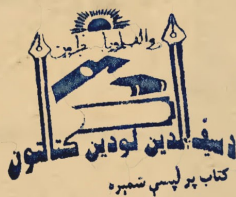 والقلم وما یسطرون
د سیف الدین لودین کتابتون
کتاب پر لپسې شمېره